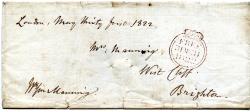 London, May thirty first 1822
Mrs. Manning
West Cliff
Brighton
Wm Manning
FREE
1822